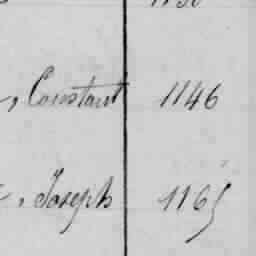 , Constant 1146
, Joseph 1165